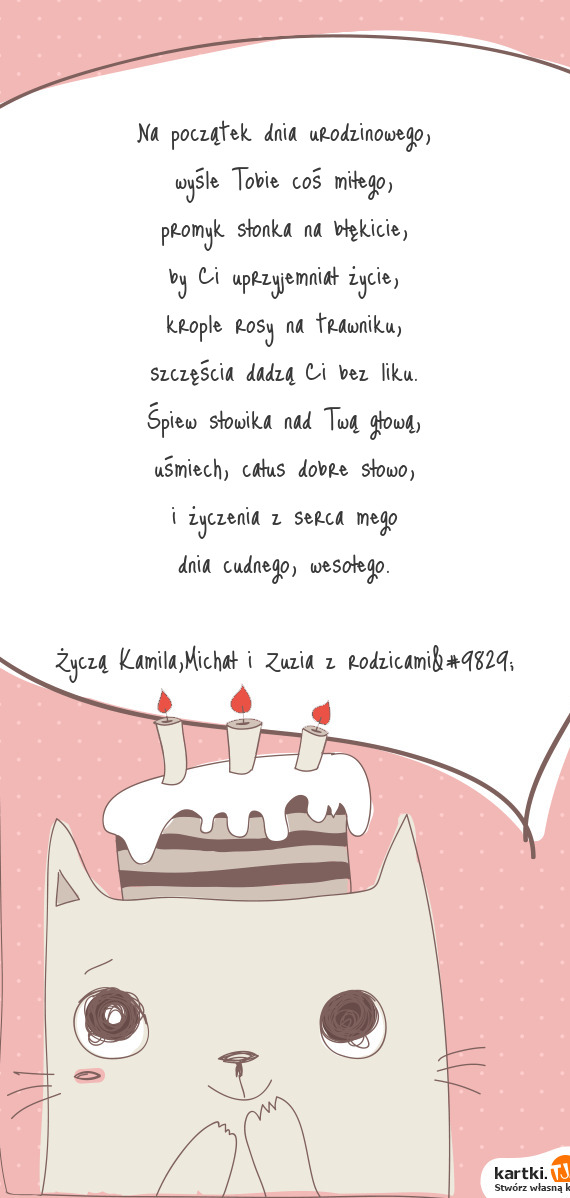 Na początek dnia urodzinowego,
wyśle Tobie coś miłego,
promyk słonka na błękicie,
by Ci uprzyjemniał życie,
krople rosy na trawniku,
szczęścia dadzą Ci bez liku.
Śpiew słowika nad Twą głową,
uśmiech, całus dobre słowo,
i życzenia z serca mego
dnia cudnego, wesołego.
Życzą Kamila,Michał i Zuzia z rodzicami&#9829;
kartki.TJ
Stwórz własną k